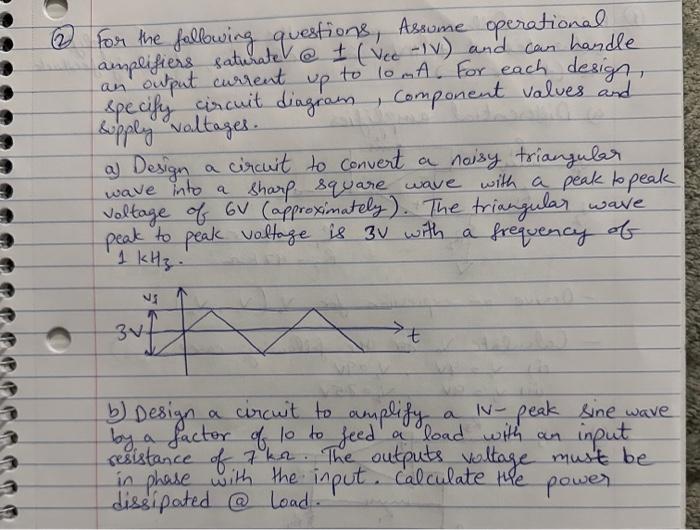 ② For the following questions, Assume operational
amplifiers saturate @ ± (Vcc -1V) and can handle
an output current up to 10 mA. For each design,
specify circuit diagram, component values and
supply voltages.
a) Design a circuit to convert a noisy triangular
wave into a sharp square wave with a peak to peak
voltage of 6V (approximately). The triangular wave
peak to peak voltage is 3V with a frequency of
1 kHz.
Vs
3V
t
b) Design a circuit to amplify a 1V- peak sine wave
by a factor of 10 to feed a load with an input
resistance of 7kΩ. The outputs voltage must be
in phase with the input. Calculate the power
dissipated @ Load.